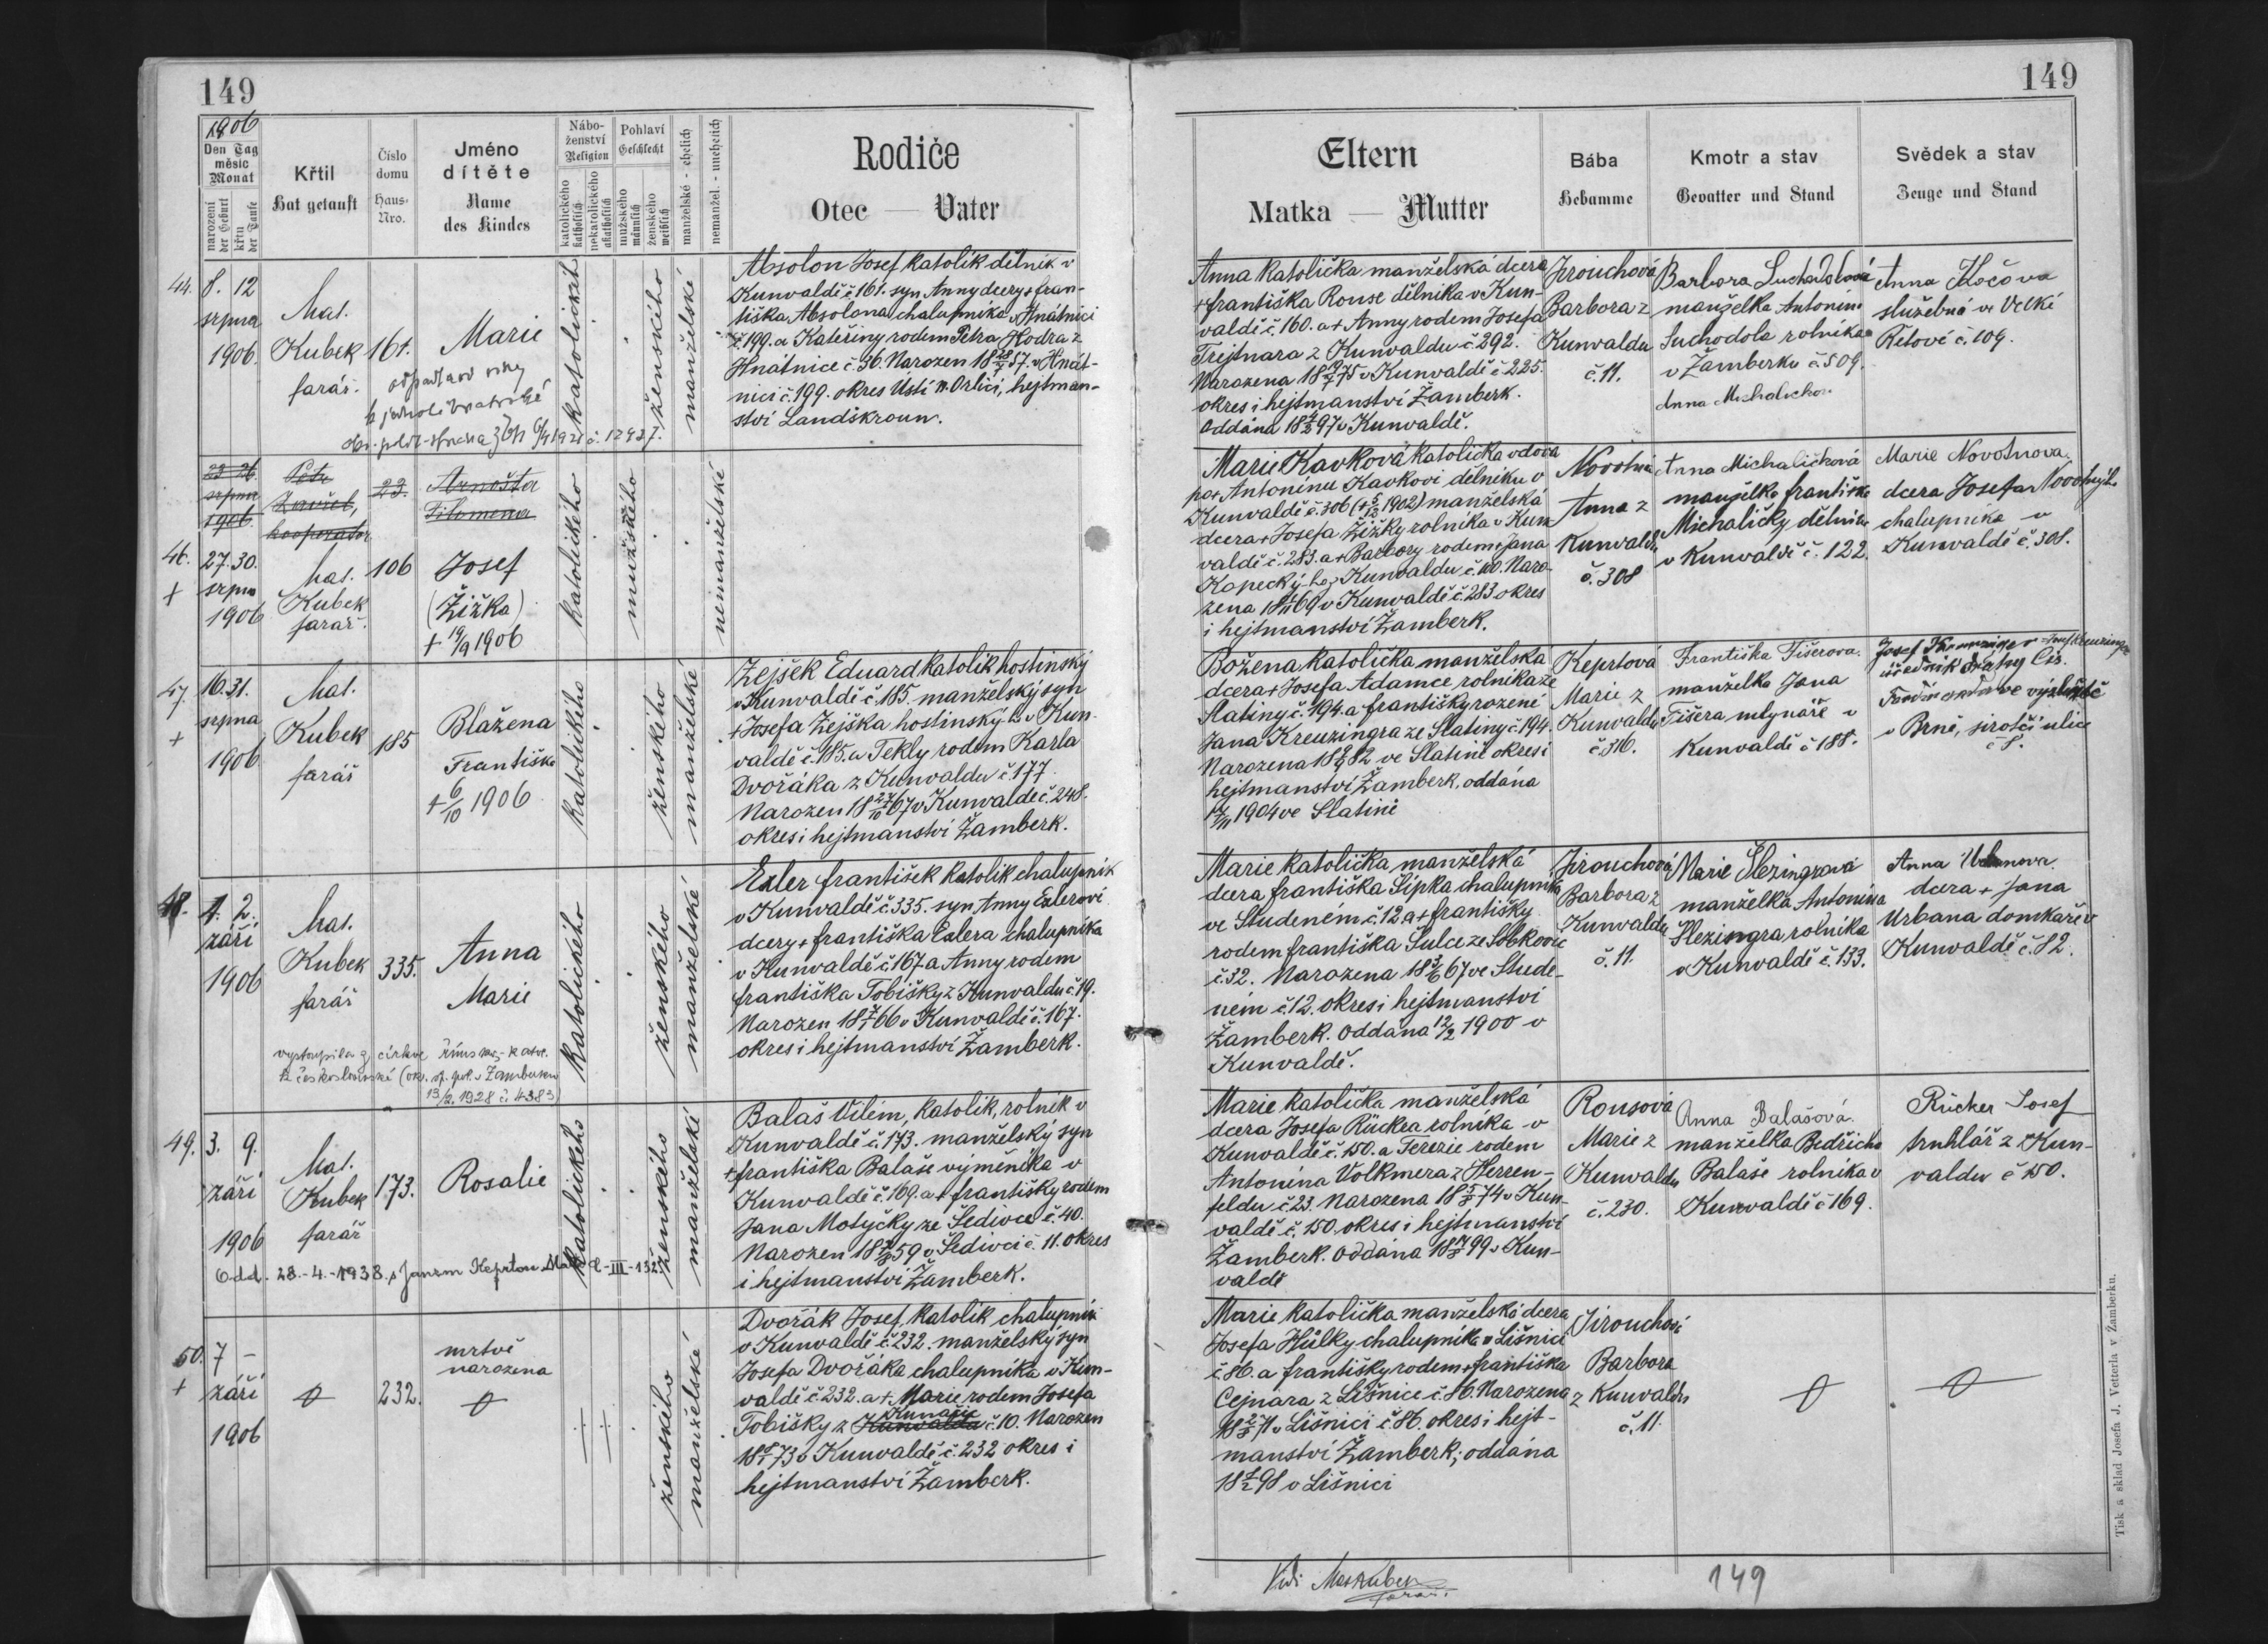 149
149
1906
Den Tag
měsíc
Monat
narození
der Geburt
křtu
der Taufe
Křtil
Hat getauft
Číslo
domu
Haus-
Nro.
Jméno
dítěte
Name
des Kindes
Nábo-
ženství
Religion
katolického
katholisch
nekatolického
akatholisch
Pohlaví
Geschlecht
mužského
männlich
ženského
weiblich
manželské - ehelich
nemanžel. - unehelich
Rodiče
Otec — Vater
Eltern
Matka — Mutter
Bába
Hebamme
Kmotr a stav
Gevatter und Stand
Svědek a stav
Zeuge und Stand
44. 8. 12
srpna
1906.
Mat.
Kubek
farář.
161.
Marie
č. 12927.
katolického
ženského
manželské
Absolon Josef katolík dělník v
Kunvaldě č. 161. syn Anny dcery + fran-
tiška Absolona chalupníka v Hnátnici
č. 199. a Kateřiny rodem Petra Hodra z
Hnátnice č. 36. Narozen 18 57. v Hnát-
nici č. 199. okres Ústí n. Orlicí, hejtman-
ství Landškroun.
Anna katolička manželská dcera
+ františka Rouse dělníka v Kun-
valdě č. 160. a + Anny rodem Josefa
Trejtnara z Kunvaldu č. 292.
Narozena 18 75 v Kunvaldě č. 225.
okres i hejtmanství Žamberk.
Oddána 18 97 v Kunvaldě.
Jirouchová
Barbora z
Kunvaldu
č. 11.
Barbora Suchodolová
manželka Antonína
Suchodola rolníka
v Žamberku č. 509.
Anna
Anna Kočova
služebná ve Velké
Řetové č. 109.
23 26
srpna
1906.
Petr
kooperator
23.
Arnošta
Filomena
46. 27. 30.
+ srpna
1906
Mat.
Kubek
farář.
106
Josef
(Žižka)
+ 19/9 1906
katolického
mužského
nemanželské
Marie Kavková katolička vdova
po + Antonínu Kavkovi dělníku v
Kunvaldě č. 306 (+ 1902) manželská
dcera + Josefa Žižky rolníka v Kun-
valdě č. 283. a + Barbory rodem + Jana
Kopecký-ho z Kunvaldu č. 100. Naro-
zena 18 69 v Kunvaldě č. 283 okres
i hejtmanství Žamberk.
Novotná
Anna z
Kunvaldu
č. 308
Anna Michaličková
manželka františka
Michaličky dělníka
v Kunvaldě č. 122.
Marie Novotnova
dcera Josefa Novotnýho
chalupníka v
Kunvaldě č. 308.
47. 16. 31.
+ srpna
1906
Mat.
Kubek
farář
185
Blažena
Františka
+ 6/10 1906
katolického
ženského
manželské
Zejšek Eduard katolík hostinský
v Kunvaldě č. 185. manželský syn
+ Josefa Zejška hostinský-ho v Kun-
valdě č. 185. a Tekly rodem Karla
Dvořáka z Kunvaldu č. 177.
Narozen 18 67 v Kunvaldě č. 248.
okres i hejtmanství Žamberk.
Božena katolička manželská
dcera + Josefa Adamce rolníka ze
Slatiny č. 194. a františky rozené
Jana Kreuzingra ze Slatiny č. 194.
Narozena 18 82 ve Slatině okres i
hejtmanství Žamberk, oddána
1904 ve Slatině
Keprtová
Marie z
Kunvaldu
č. 316.
Františka Fišerova.
manželka Jana
Fišera mlynáře v
Kunvaldě č. 188.
Josef Kreuzinger
úředník dráhy Cís.
v Brně, sirotčí ulice
č. 8.
48. 1. 2.
září
1906
Mat.
Kubek
farář
335.
Anna
Marie
vystoupila z církve římsko-kato.
k československé (okr. sp. pol. v Žamberku
13/2. 1928 č. 4383)
katolického
ženského
manželské
Exler františek katolík chalupník
v Kunvaldě č. 335. syn Anny Exlerové
dcery + františka Exlera chalupníka
v Kunvaldě č. 167 a Anny rodem
františka Tobišky z Kunvaldu č. 19.
Narozen 18 66 v Kunvaldě č. 167.
okres i hejtmanství Žamberk.
Marie katolička manželská
dcera františka Šípka chalupníka
ve Studeném č. 12 a + františky
rodem františka Šulce ze Sobkovic
č. 32. Narozena 18 3/6 67 ve Stude-
ném č. 12. okres i hejtmanství
Žamberk. Oddána 12/2 1900 v
Kunvaldě.
Jirouchová
Barbora z
Kunvaldu
č. 11.
Marie Šlezingrová
manželka Antonína
Šlezingra rolníka
v Kunvaldě č. 133.
Anna Urbanova
dcera + Jana
Urbana domkáře v
Kunvaldě č. 82.
49. 3. 9.
září
1906
Mat.
Kubek
farář
173.
Rosalie
Odd. 28.-4.-1938. s Janem Keprtou
katolického
ženského
manželské
Balaš Vilém, katolík, rolník v
Kunvaldě č. 173. manželský syn
+ františka Balaše výměníka v
Kunvaldě č. 169. a + františky rodem
Jana Motyčky ze Šedivce č. 40.
Narozen 18 59 v Šedivci č. 11. okres
i hejtmanství Žamberk.
Marie katolička manželská
dcera Josefa Rückra rolníka v
Kunvaldě č. 150. a Terezie rodem
Antonína Volkmera z Herren-
feldu č. 23. Narozena 18 74 v Kun-
valdě č. 150. okres i hejtmanství
Žamberk. Oddána 18 99 v Kun-
valdě
Rousová
Marie z
Kunvaldu
č. 230.
Anna Balašová.
manželka Bedřicha
Balaše rolníka v
Kunvaldě č. 169.
Rücker Josef
truhlář z Kun-
valdu č. 150.
50. 7 –
+ září
1906
232.
mrtvě
narozena
ženského
manželské
Dvořák Josef, katolík chalupník
v Kunvaldě č. 232. manželský syn
Josefa Dvořáka chalupníka v Kun-
valdě č. 232. a + Marie rodem Josefa
Tobišky z Kunvaldu Kunačic č. 10. Narozen
18 73 v Kunvaldě č. 232 okres i
hejtmanství Žamberk.
Marie katolička manželská dcera
Josefa Hülky chalupníka v Lišnici
č. 86. a františky rodem + františka
Cejnara z Lišnice č. 86. Narozena
18 71 v Lišnici č. 86. okres i hejt-
manství Žamberk; oddána
18 98 v Lišnici
Jirouchová
Barbora
z Kunvaldu
č. 11.
Vidi Mat Kubek
farář.
149
Tisk a sklad Josefa J. Vetterla v Žamberku.